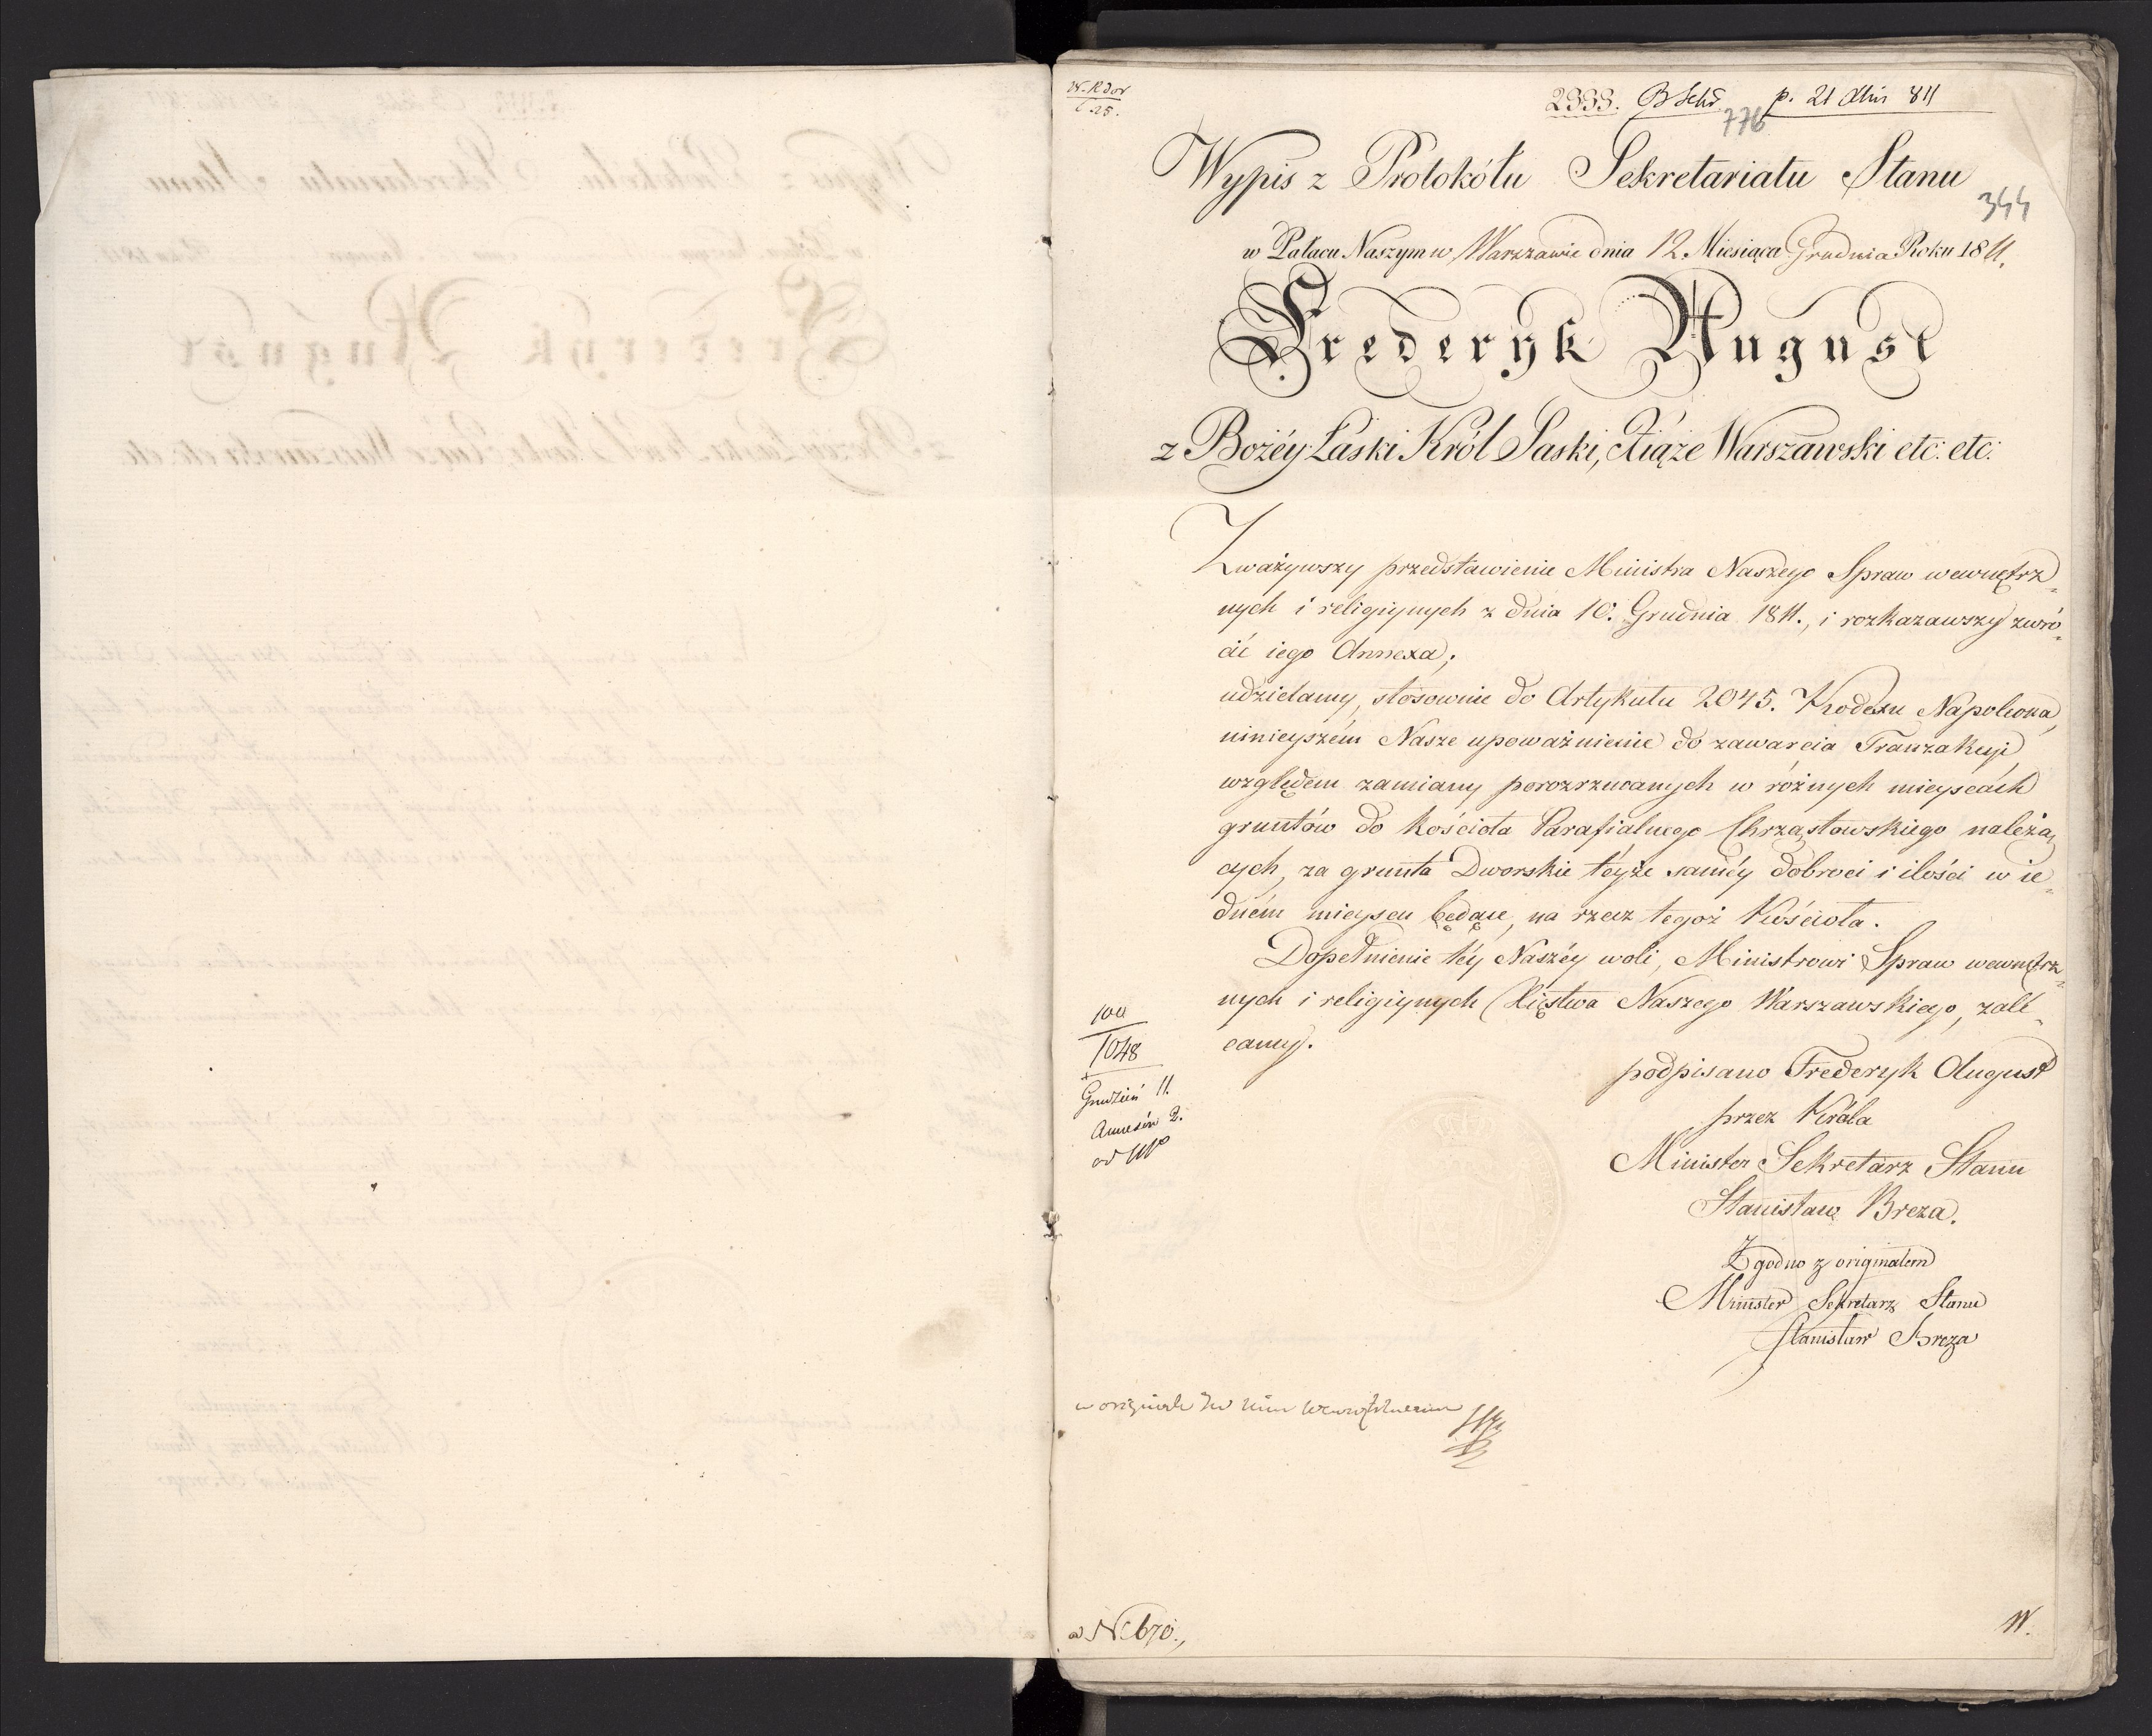 2333. p. 21 811
776
Wypis z Protokółu Sekretariatu Stanu
344
w Pałacu Naszym w Warszawie dnia 12. Miesiąca Grudnia Roku 1811.
Frederyk August
z Bożéy Łaski Król Saski, Xiąże Warszawski etc: etc:
Zważywszy przedstawienie Ministra Naszego Spraw wewnętrz-
nych i religiynych z dnia 10. Grudnia 1811., i rozkazawszy zwró-
cić iego Annexa;
udzielamy, stósownie do Artykułu 2045. Kodexu Napoleona,
ninieyszém Nasze upoważnienie do zawarcia Tranzakcyi
względem zamiany porozrzucanych w różnych mieyscach
gruntów do kościoła Parafialnego Chrząstowskiego należą-
cych, za grunta Dworskie téyże saméy dobroci i ilości w ie-
dném mieyscu będące, na rzecz tegoż Kościoła.
Dopełnienie téy Naszéy woli, Ministrowi Spraw wewnętrz-
nych i religiynych Xięstwa Naszego Warszawskiego, zale-
camy.
podpisano Frederyk August
przez Króla
Minister Sekretarz Stanu
Stanisław Breza.
Zgodno z originałem
Minister Sekretarz Stanu
Stanisław Breza
1048
Grudzień 11.
Annexów 2.
N. 670.
W.